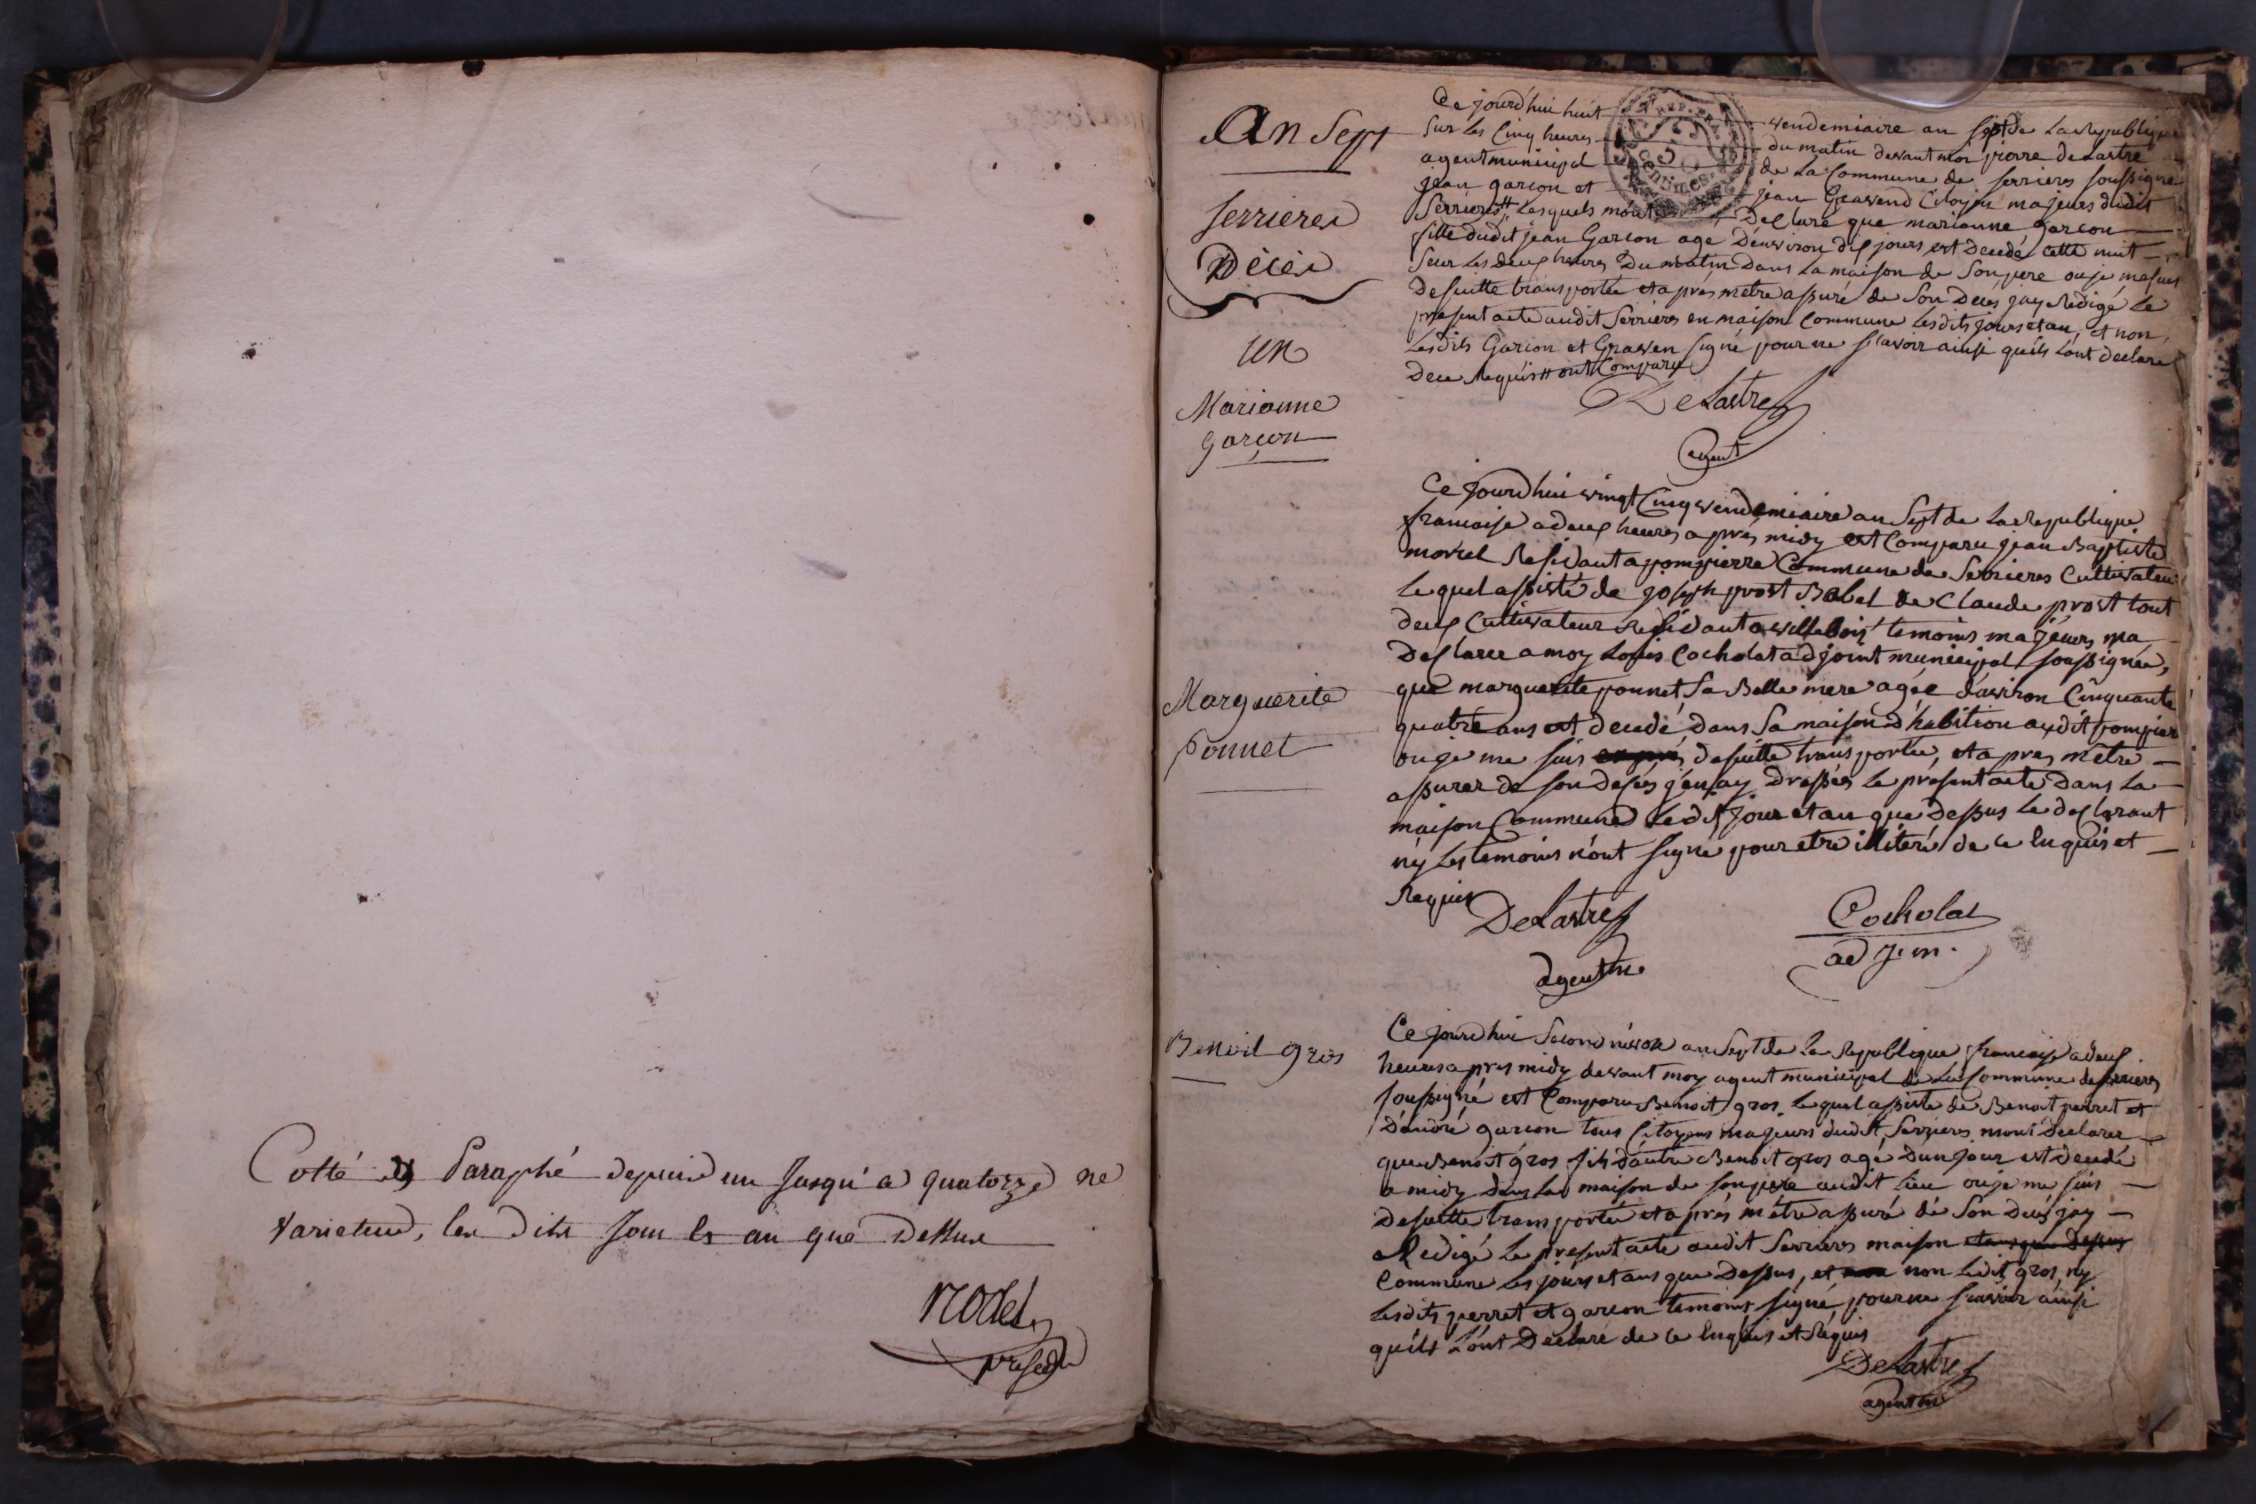 Cotté et Paraphé depuis un Jusqu'a quatorze ne
varietur, les dits Jour et an que dessus
nodet
presdt
An Sept
Serrieres
Décès
un
Marianne
garçon
Ce jourd'hui huit vendemiaire an sept de La Republique
sur les Cinq heures du matin devant moi pierre deLastre
agent municipal de La Commune de serrieres soussigne
jean garcon et jean Gravend Citoyens majeurs dudit
Serrieres # Lesquels m'ont Declaré que marianne garcon
fille dudit jean Garcon age D'environ dix jours est Decedé cette nuit
seur Les deux heures Du matin Dans La maison de son pere ou je me suis
de suitte transportée et apres m'etre assuré de son Deces jay Redigé Le
present acte audit Serrieres en maison Commune Lesdits jours et an, et non
Lesdits Garcon et Graven signé pour ne scavoir ainsi quils L'ont declaré
Dece Requis # ont Comparu
DeLastre
agent
Marguerite
ponnet
Ce jourd'hui vingt Cinq vendemiaire an Sept de La Republique
francaise a deux heures apres midy est Comparu jean Baptiste
morel Residant a pompierre Commune de Serrieres Cultivateur
Le quel assisté de joseph prost Babel de Claude prost tout
deux Cultivateur Residant a villebois temoins majeurs, ma
Declarer a moy Louis Cocholat adjoint municipal soussignée,
que marguerite ponnet sa Belle mere agée d'aviron Cinquante
quatre ans est decedé Dans sa maison d'habition audit pompier
ou je me suis de suitte transportée, et apres m'etre
assurer de son Deses j'en ay Dressés Le present acte Dans La
maison Commune Ledit jour et an que Dessus Le declarant
ny Les temoins n'ont signé pour etre illiteré de ce Enquis et
Requis
DeLastre
agent m.
Cocholat
adj. m.
Benoit gros
Ce jourd'hui Second nivose an Sept de La Republique francaise a deux
heures apres midy devant moy agent municipal de La Commune de serrieres
soussigné est Comparu Benoit gros Lequel assisté de Benoit perret et
D'andré garcon tous Citoyens majeurs dudit Serrieres m'ont Declarer
que Benoit gros fils d'autre Benoit gros agé D'un jour est Decedé
a midy dans La maison de son pere audit Lieu ou je me suis
De suitte transportée et après m'etre assuré de son Decès jay
Redigé Le present acte audit Serrieres maison et ans que Dessus
Commune Les jours et ans que Dessus, et non Ledit gros, ny
Lesdits perret et garcon temoins signé, pour ne scavoir ainsi
qu'ils L'ont Declaré de ce Enquis et Requis
DeLastre
agent m